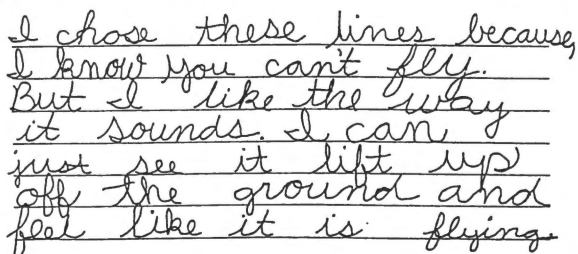 I chose these lines because,
I know you can't fly.
But I like the way
it sounds. I can
just see it lift up
off the ground and
feel like it is flying.